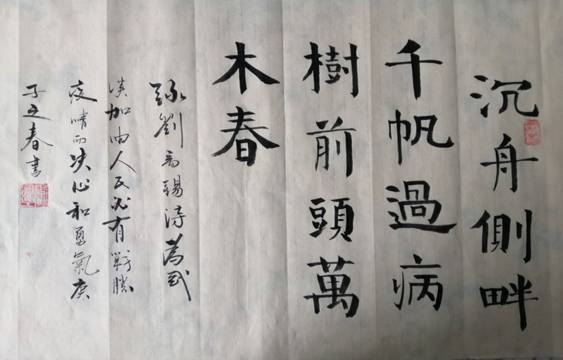 沉舟側畔
千帆過病
樹前頭萬
木春
録劉禹錫詩為武
漢加油人民必有戰勝
疫情的决心和勇氣庚
子之春書